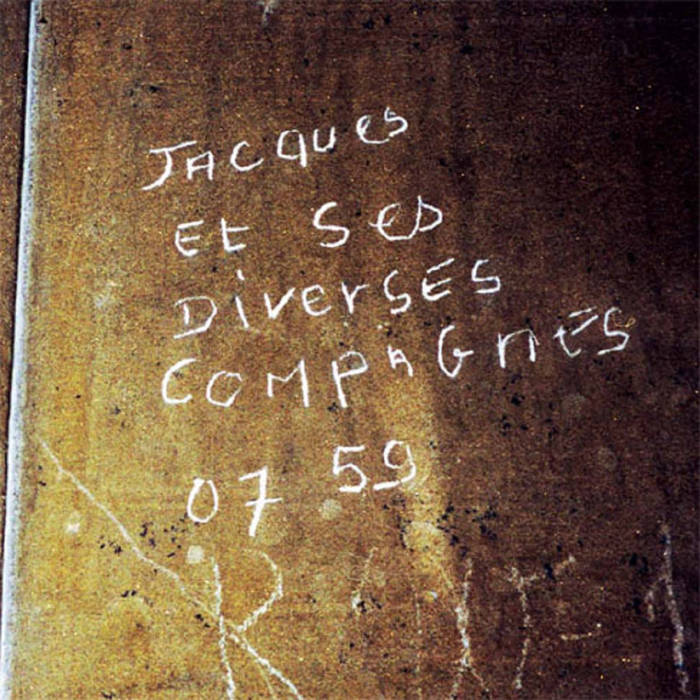 JACQues
Et Ses
DiverSES
COMPAGNES
07 59